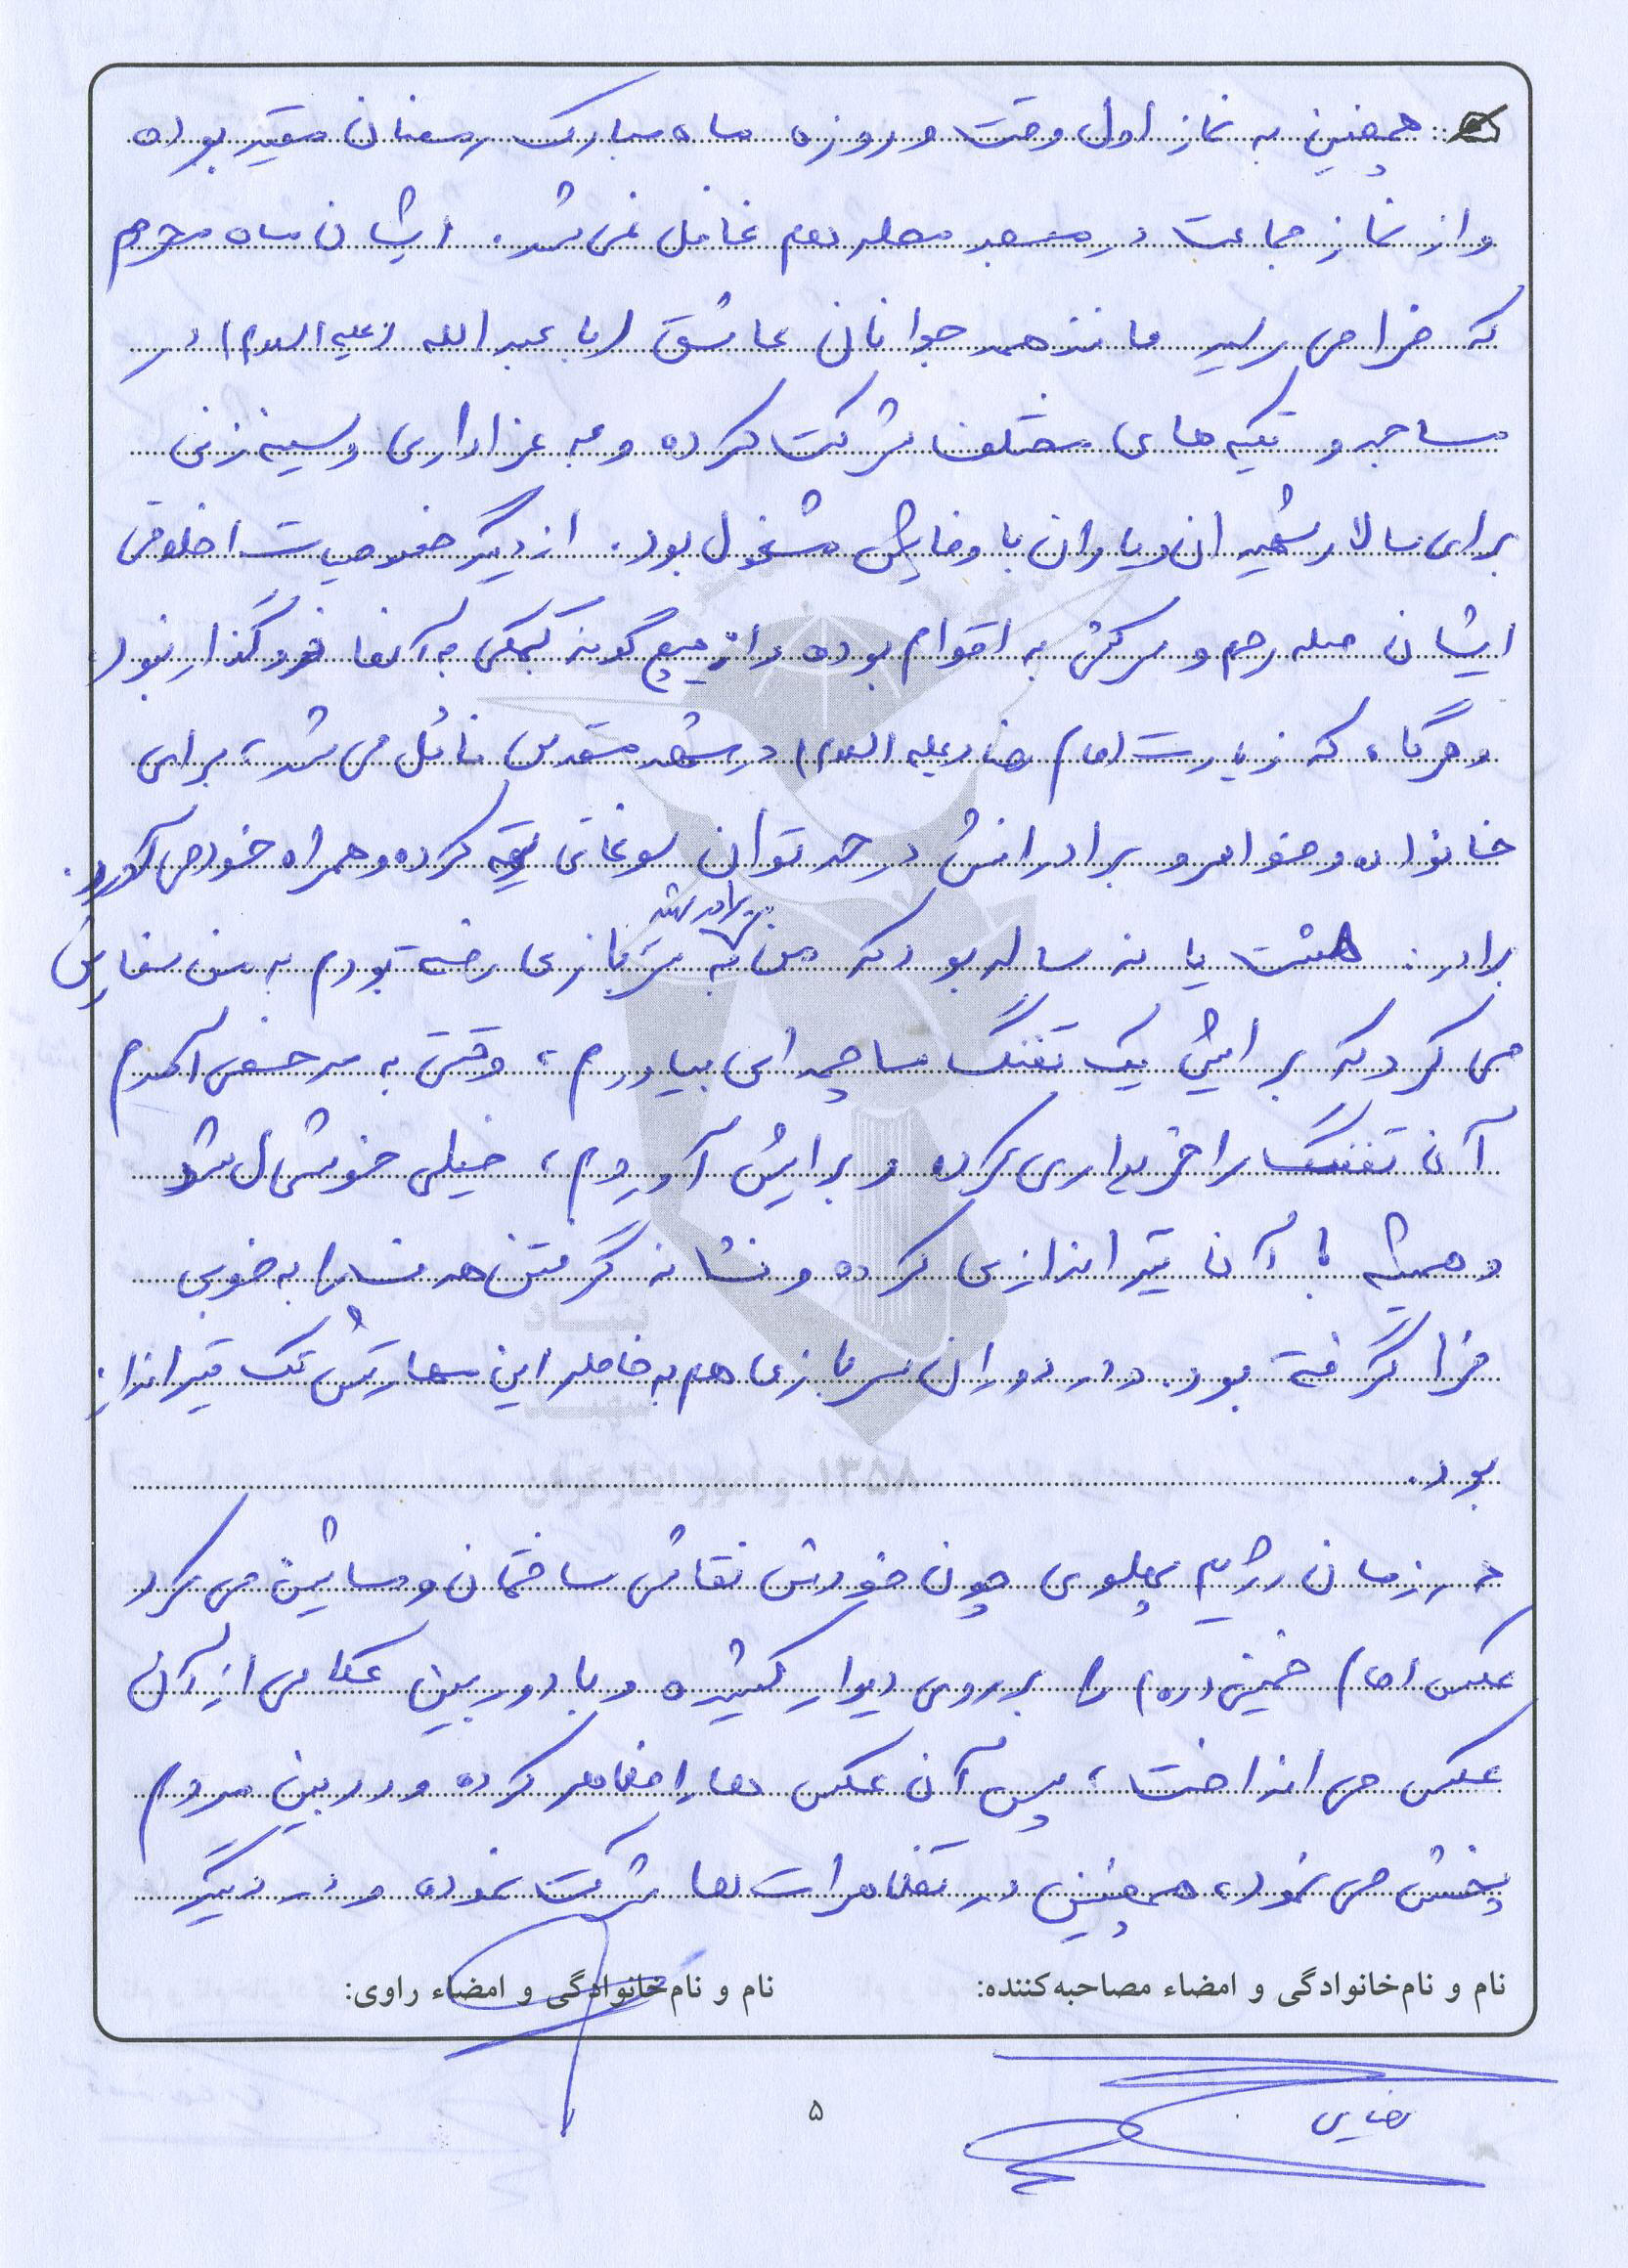 همچنین به نماز اول وقت و روزه ماه مبارک رمضان مقید بوده
و از نماز جماعت در مسجد محله هم غافل نمی شد. ایشان ماه محرم
که فرا می رسید مانند همه جوانان عاشق ابا عبدالله (علیه السلام) در
مساجد و تکیه های مختلف شرکت کرده و به عزاداری و سینه زنی
برای سالار شهیدان و یاران با وفایش مشغول بود. از دیگر خصوصیت اخلاقی
ایشان صله رحم و سرکشی به اقوام بوده و از هیچ گونه کمکی به آنها فروگذار نبود
و هرگاه که زیارت امام رضا (علیه السلام) در مشهد مقدس نائل می شد، برای
خانواده و خواهر و برادرانش در حد توان سوغاتی تهیه کرده و همراه خود می آورد.
برادر: هشت یا نه ساله بود که من به سربازی رفته بودم به من سفارش
می کرد که برایش یک تفنگ ساچمه ای بیاورم، وقتی به مرخصی آمدم
آن تفنگ را خریداری کرده و برایش آوردم، خیلی خوشحال شد
و همیشه با آن تیراندازی کرده و نشانه گرفتن هدف را به خوبی
فرا گرفته بود. و در دوران سربازی هم به خاطر این مهارتش تک تیرانداز
بود.
در زمان رژیم پهلوی چون خودش نقاشی ساختمان و ماشین می کرد
عکس امام خمینی (ره) را بر روی دیوار کشیده و با دوربین عکاسی از آن
عکس می انداخت، پس آن عکس ها را ظاهر کرده و در بین مردم
پخش می نمود، همچنین در تظاهرات ها شرکت نموده و در دیگر
بنیاد
شهید
و امور ایثارگران ۱۳۵۸
نام و نام‌خانوادگی و امضاء مصاحبه‌کننده: نام و نام‌خانوادگی و امضاء راوی:
۵